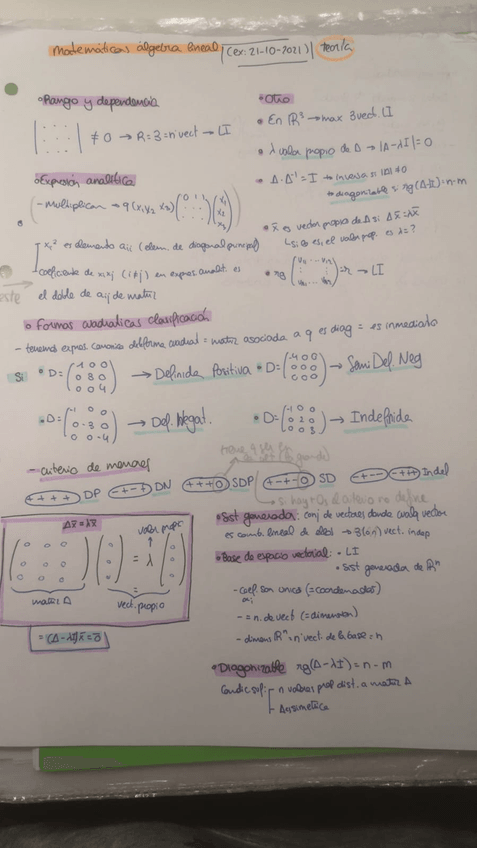 matemáticas álgebra lineal | (ex: 21-10-2021) | teoría
• Rango y dependencia
| | ≠ 0 → R = 3 = nº vect → LI
• Expresión analítica
- multiplicar → q(x₁ x₂ x₃) (x₁ x₂ x₃)
xᵢ² es elemento aᵢᵢ (elem. de diagonal principal)
coeficiente de xᵢxⱼ (i≠j) en expres. analít. es
el doble de aᵢⱼ de matriz
• Otro
• En ℝ³ → max 3 vect. LI
• λ valor propio de A → |A-λI| = 0
• A·A⁻¹ = I → inversa si |A| ≠ 0
→ diagonalizable si rg(A-λI) = n-m
• x̄ es vector propio de A si Ax̄ = λx̄
↳ si, es, el valor prop. es λ = ?
• rg = r → LI
• Formas cuadráticas clasificación
- tenemos expres. canónica de forma cuadrát = matriz asociada a q es diag = es inmediato
Si • D = (1 0 0 0 3 0 0 0 4) → Definida Positiva • D = (-1 0 0 0 0 0 0 0 0) → Semi Def. Neg
• D = (-1 0 0 0 -3 0 0 0 -4) → Def. Negat. • D = (-1 0 0 0 2 0 0 0 3) → Indefinida
- criterio de menores
++++ DP -+-+ DN +++0 SDP -+-0 SD -+-- -+++ Indef
Ax̄ = λx̄
valor propio
= λ
matriz A
vect. propio
= (A-λI)x̄ = 0̄
• Sist generador: conj de vectores donde cualq vector
es comb. lineal de ellos
• Base de espacio vectorial: • LI
• Sist generador de ℝⁿ
- coef. son únicos (= coordenadas)
αᵢ
- = n. de vect (= dimensión)
- dimens ℝⁿ = nº vect. de la base = n
• Diagonizable rg(A-λI) = n-m
Condic. suf: - n valores prop dist. a matriz A
- A simétrica